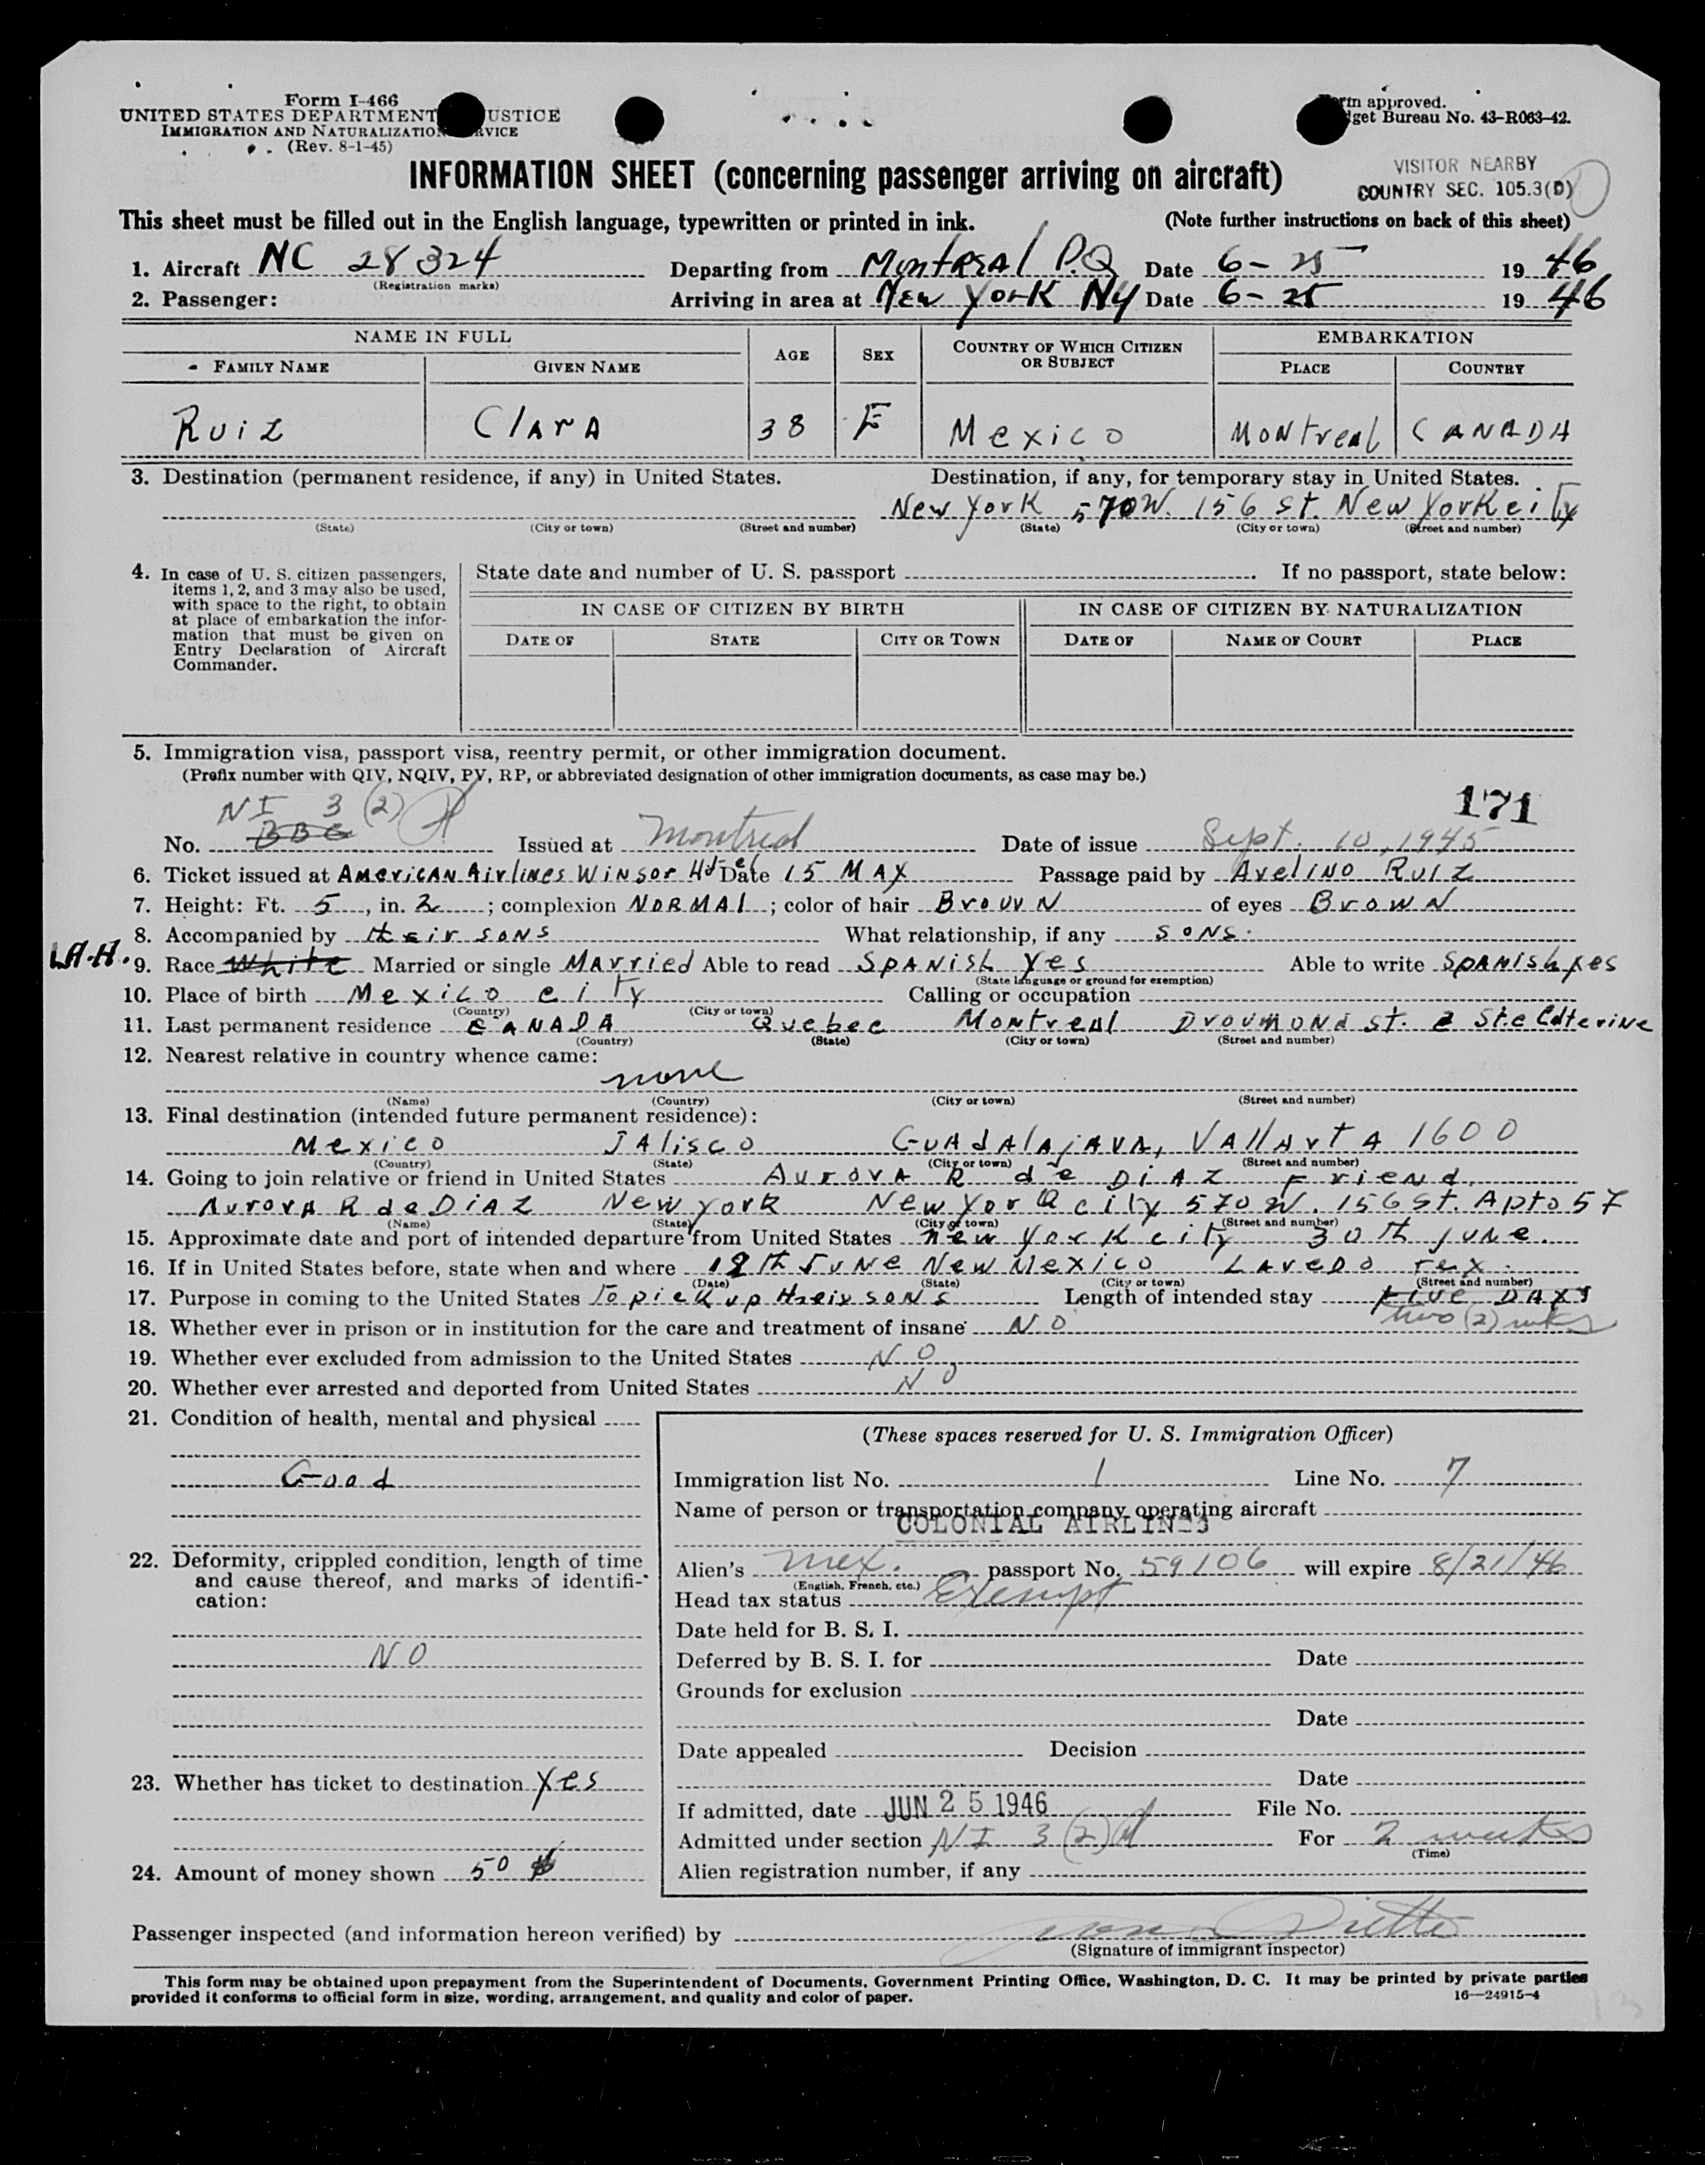 Form I-466
UNITED STATES DEPARTMENT USTICE
IMMIGRATION AND NATURALIZATION RVICE
(Rev. 8-1-45)
rm approved.
get Bureau No. 43-R063-42.
INFORMATION SHEET (concerning passenger arriving on aircraft)
VISITOR NEARBY
COUNTRY SEC. 105.3(D)
This sheet must be filled out in the English language, typewritten or printed in ink. (Note further instructions on back of this sheet)
1. Aircraft NC 28324 Departing from Montreal P.Q Date 6-25 1946
(Registration marks)
2. Passenger: Arriving in area at New York NY Date 6-25 1946
NAME IN FULL AGE SEX COUNTRY OF WHICH CITIZEN OR SUBJECT EMBARKATION
FAMILY NAME GIVEN NAME PLACE COUNTRY
Ruiz Clara 38 F Mexico Montreal CANADA
3. Destination (permanent residence, if any) in United States. Destination, if any, for temporary stay in United States.
New York 570 W. 156 St. New York city
(State) (City or town) (Street and number) (State) (City or town) (Street and number)
4. In case of U. S. citizen passengers, items 1, 2, and 3 may also be used, with space to the right, to obtain at place of embarkation the information that must be given on Entry Declaration of Aircraft Commander.
State date and number of U. S. passport If no passport, state below:
IN CASE OF CITIZEN BY BIRTH IN CASE OF CITIZEN BY NATURALIZATION
DATE OF STATE CITY OR TOWN DATE OF NAME OF COURT PLACE
5. Immigration visa, passport visa, reentry permit, or other immigration document.
(Prefix number with QIV, NQIV, PV, RP, or abbreviated designation of other immigration documents, as case may be.)
171
NI 3 (2)
No. BBC Issued at Montreal Date of issue Sept. 10, 1945
6. Ticket issued at American Airlines Winsor Hotel Date 15 MAY Passage paid by Avelino Ruiz
7. Height: Ft. 5, in. 2; complexion NORMAL; color of hair Brown of eyes Brown
8. Accompanied by their sons What relationship, if any sons.
9. Race White Married or single Married Able to read Spanish Yes Able to write Spanish yes
(State language or ground for exemption)
10. Place of birth Mexico city Calling or occupation
(Country) (City or town)
11. Last permanent residence CANADA Quebec Montreal Droumond St. & Ste Caterine
(Country) (State) (City or town) (Street and number)
12. Nearest relative in country whence came:
none
(Name) (Country) (City or town) (Street and number)
13. Final destination (intended future permanent residence):
Mexico Jalisco Guadalajara, Vallarta 1600
(Country) (State) (City or town) (Street and number)
14. Going to join relative or friend in United States Aurora R de Diaz Friend.
Aurora R de Diaz New York New York city 570 W. 156 St. Apto 57
(Name) (State) (City or town) (Street and number)
15. Approximate date and port of intended departure from United States New York city 30th June.
16. If in United States before, state when and where 12th June New Mexico Laredo Tex.
(Date) (State) (City or town) (Street and number)
17. Purpose in coming to the United States To pick up their sons Length of intended stay Five Days
two (2) wks
18. Whether ever in prison or in institution for the care and treatment of insane NO
19. Whether ever excluded from admission to the United States NO
20. Whether ever arrested and deported from United States NO
21. Condition of health, mental and physical
Good
22. Deformity, crippled condition, length of time and cause thereof, and marks of identification:
NO
23. Whether has ticket to destination Yes
24. Amount of money shown 50 $
(These spaces reserved for U. S. Immigration Officer)
Immigration list No. 1 Line No. 7
Name of person or transportation company operating aircraft
COLONIAL AIRLINES
Alien's Mex. passport No. 59106 will expire 8/21/46
(English, French, etc.)
Head tax status Exempt
Date held for B. S. I.
Deferred by B. S. I. for Date
Grounds for exclusion
Date
Date appealed Decision
Date
If admitted, date JUN 25 1946 File No.
Admitted under section NI 3 (2) For 2 weeks
(Time)
Alien registration number, if any
Passenger inspected (and information hereon verified) by
(Signature of immigrant inspector)
This form may be obtained upon prepayment from the Superintendent of Documents, Government Printing Office, Washington, D. C. It may be printed by private parties
provided it conforms to official form in size, wording, arrangement, and quality and color of paper.
16—24915-4